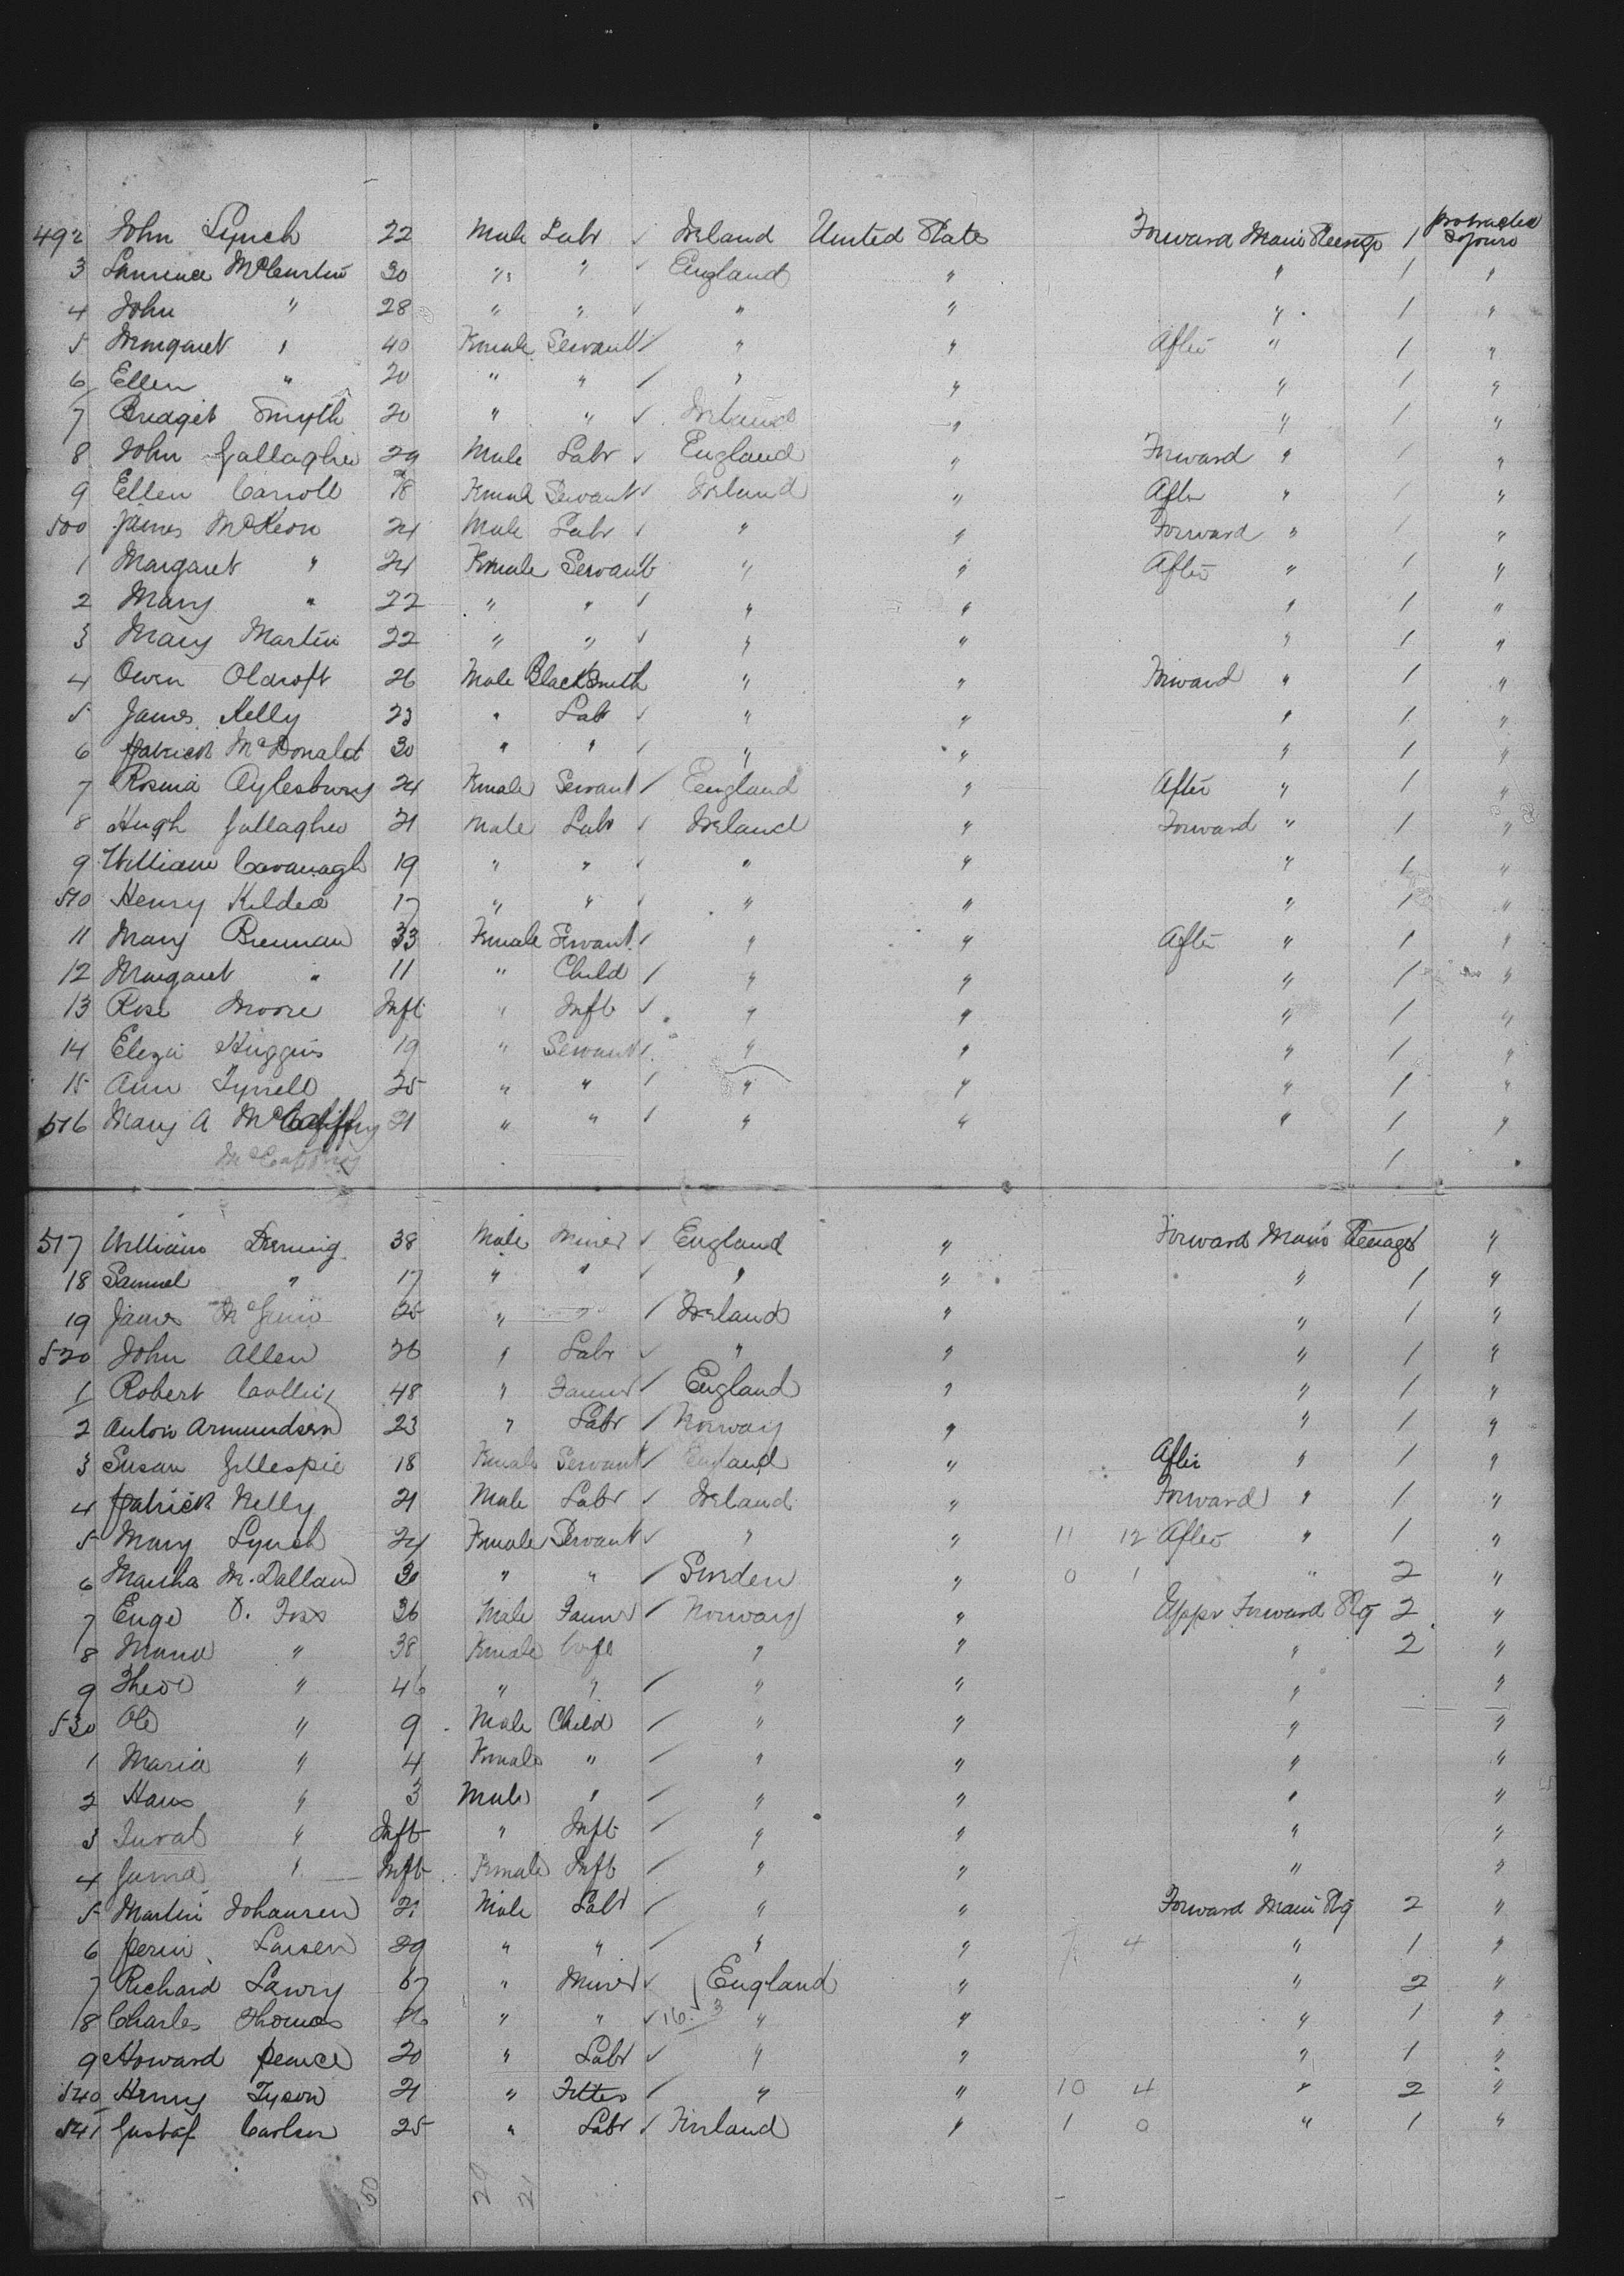 492 John Lynch 22 Male Labr ✓ Ireland United States Forward Main Steerage 1 protracted Sojourn
3 Laurence McCourtin 30 " " ✓ England " " 1 "
4 John " 28 " " ✓ " " " 1 "
5 Margaret " 40 Female Servant / " " After " 1 "
6 Ellen " 20 " " / " " " 1 "
7 Bridget Smyth 20 " " ✓ Ireland " " 1 "
8 John Gallagher 29 Male Labr ✓ England " Forward " 1 "
9 Ellen Carroll 18 Female Servant ✓ Ireland " After " 1 "
500 James McKeon 24 Male Labr ✓ " " Forward " 1 "
1 Margaret " 24 Female Servant " " After " 1 "
2 Mary " 22 " " ✓ " " " 1 "
3 Mary Martin 22 " " ✓ " " " 1 "
4 Owen Olcroft 26 Male Blacksmith " " Forward " 1 "
5 James Kelly 23 " Labr ✓ " " " 1 "
6 Patrick McDonald 30 " " / " " " 1 "
7 Rosina Aylesbury 24 Female Servant / England " After " 1 "
8 Hugh Gallagher 21 Male Labr ✓ Ireland " Forward " 1 "
9 William Cavanagh 19 " " ✓ " " " 1 "
510 Henry Kildea 17 " " ✓ " " " 1 "
11 Mary Brennan 33 Female Servant / " " After " 1 "
12 Margaret " 11 " Child / " " " 1 "
13 Rose Moore Inft " Inft ✓ " " " 1 "
14 Eliza Huggins 19 " Servant / " " " 1 "
15 Ann Tyrrell 25 " " / " " " 1 "
516 Mary A 21 " " / " " " 1 "
1
517 William 38 Male Miner ✓ England " Forward Main Steerage "
18 Samuel " 17 " " ✓ " " " 1 "
19 James " " / Ireland " " 1 "
520 John Allen 26 " Labr ✓ " " " 1 "
1 Robert Collins 48 " Farmer / England " " 1 "
2 Anton Armundsen 23 " Labr / Norway " " 1 "
3 Susan Gillespie 18 Female Servant / England " After " 1 "
4 Patrick Kelly 21 Male Labr ✓ Ireland " Forward " 1 "
5 Mary Lynch 24 Female Servant ✓ " " 11 12 After " 1 "
6 Martha M. Dalland 30 " " / Sweden " 0 1 " 2 "
7 Enge O. Foss 36 Male Farmer / Norway " Upper Forward Stg 2 "
8 " 38 Female Wife " " " 2 "
9 " 46 " " / " " " "
530 Ole " 9 Male Child / " " " "
1 Maria " 4 Female " / " " " "
2 Hans " 3 Male " / " " " "
3 " Inft " Inft / " " " "
4 " Inft Female Inft / " " " "
5 Martin Johansen 21 Male Labr / " " Forward Main Stg 2 "
6 Larsen 29 " " / " " 7 4 " 1 "
7 Richard Lawry 67 " Miner ✓ England " " 2 "
8 Charles Thomas 16 " " ✓ 16. 3 " " " 1 "
9 Howard Pearce 20 " Labr ✓ " " " 1 "
540 Henry Tyson 21 " Fitter / " " 10 4 " 2 "
541 Gustaf Carlson 25 " Labr ✓ Finland " 1 0 " 1 "
50 29 21